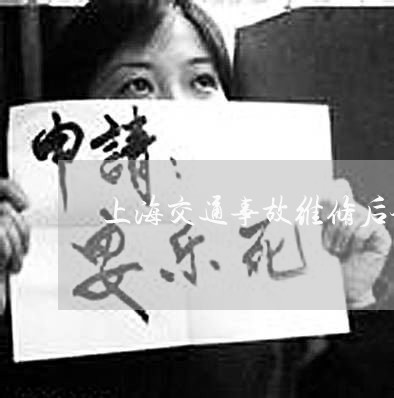 申請：
上海交通事故维修后
安乐死